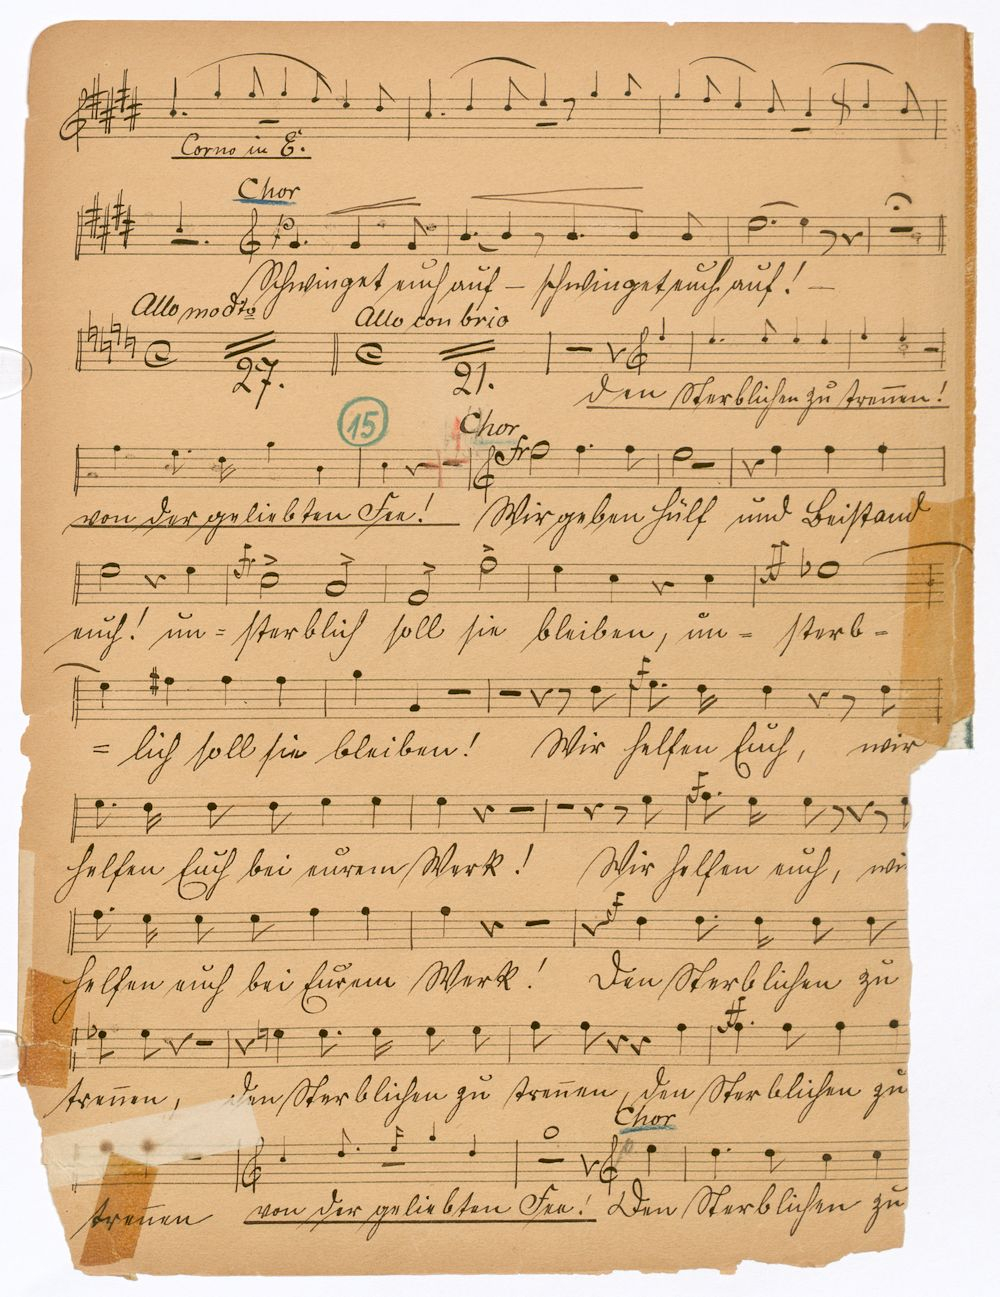 Corno in E.
Chor
Schwinget euch auf – schwinget euch auf! –
Allo modto Allo con brio
27. 21.
den Sterblichen zu treñen!
15 Chor
von der geliebten Fee! Wir geben Hülf und Beistand
euch! un= sterblich soll sie bleiben, un= sterb=
=lich soll sie bleiben! Wir helfen Euch, wir
helfen Euch bei eurem Werk! Wir helfen euch, wi
helfen euch bei Eurem Werk! Den Sterblichen zu
treñen, den Sterblichen zu treñen, den Sterblichen zu
Chor
treñen von der geliebten Fee! Den Sterblichen zu